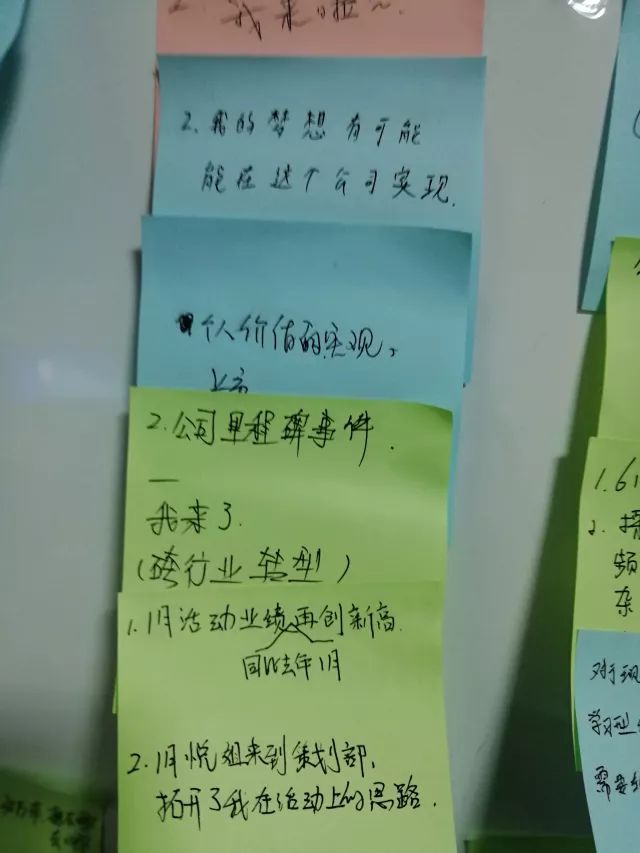 2. 我来啦~.
2. 我的梦想有可能
能在这个公司实现.
个人价值的实现、
2. 公司里程碑事件.
一
我来了.
(跨行业转型)
1. 1月活动业绩再创新高.
同比去年1月
2. 1月悦姐来到策划部,
拓开了我在活动上的思路.
1. 6
2.
频
杂
对于现
学习型
需要